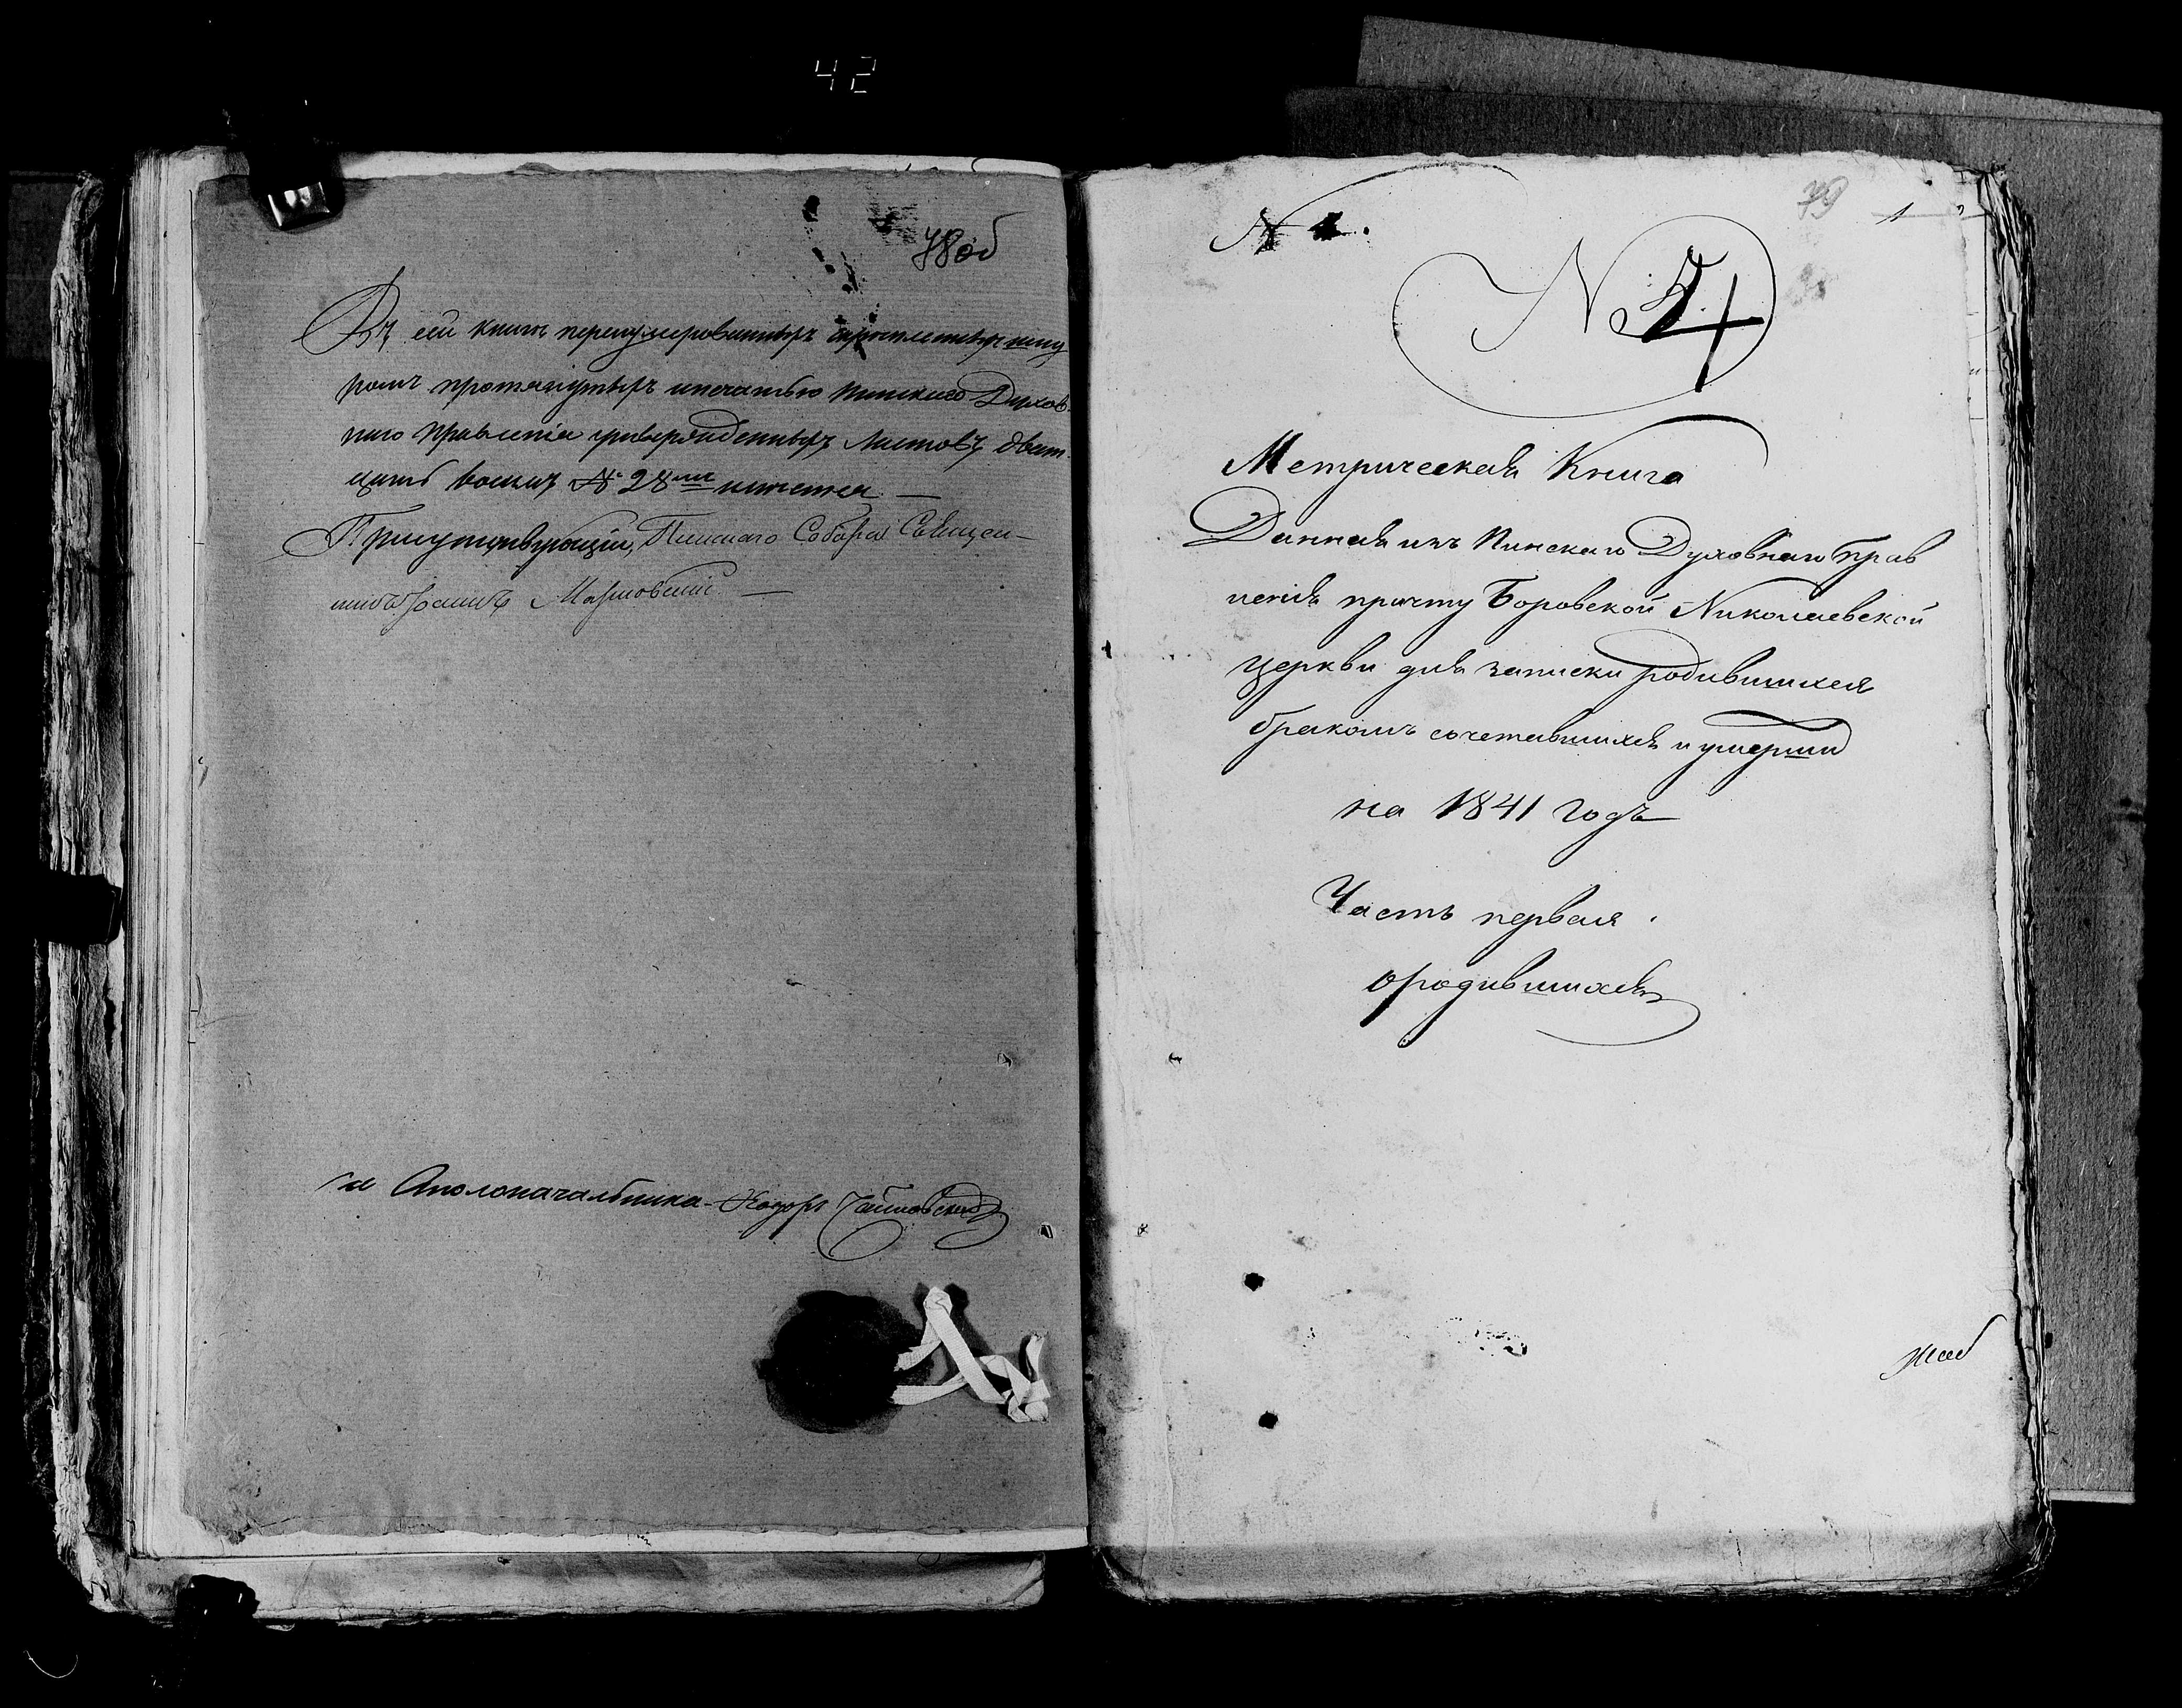 42
78 об
Въ сей книгѣ перенумерованныхъ
ромъ протянутыхъ и печатью Пинскаго Духов
наго Правленія утвержденныхъ листовъ двад
цать восемь № 28мь имѣется
Присутствующій, Пинскаго Собора Священ
никъ Іоаннъ
за Столоначальника
79
1
№ 1.
№ 4
Метрическая Книга
Данная изъ Пинскаго Духовнаго Прав
ленія причту Боровской Николаевской
Церкви для записки родившихся
бракомъ сочетавшихся и умерших
на 1841 годъ
Часть первая
о родившихся